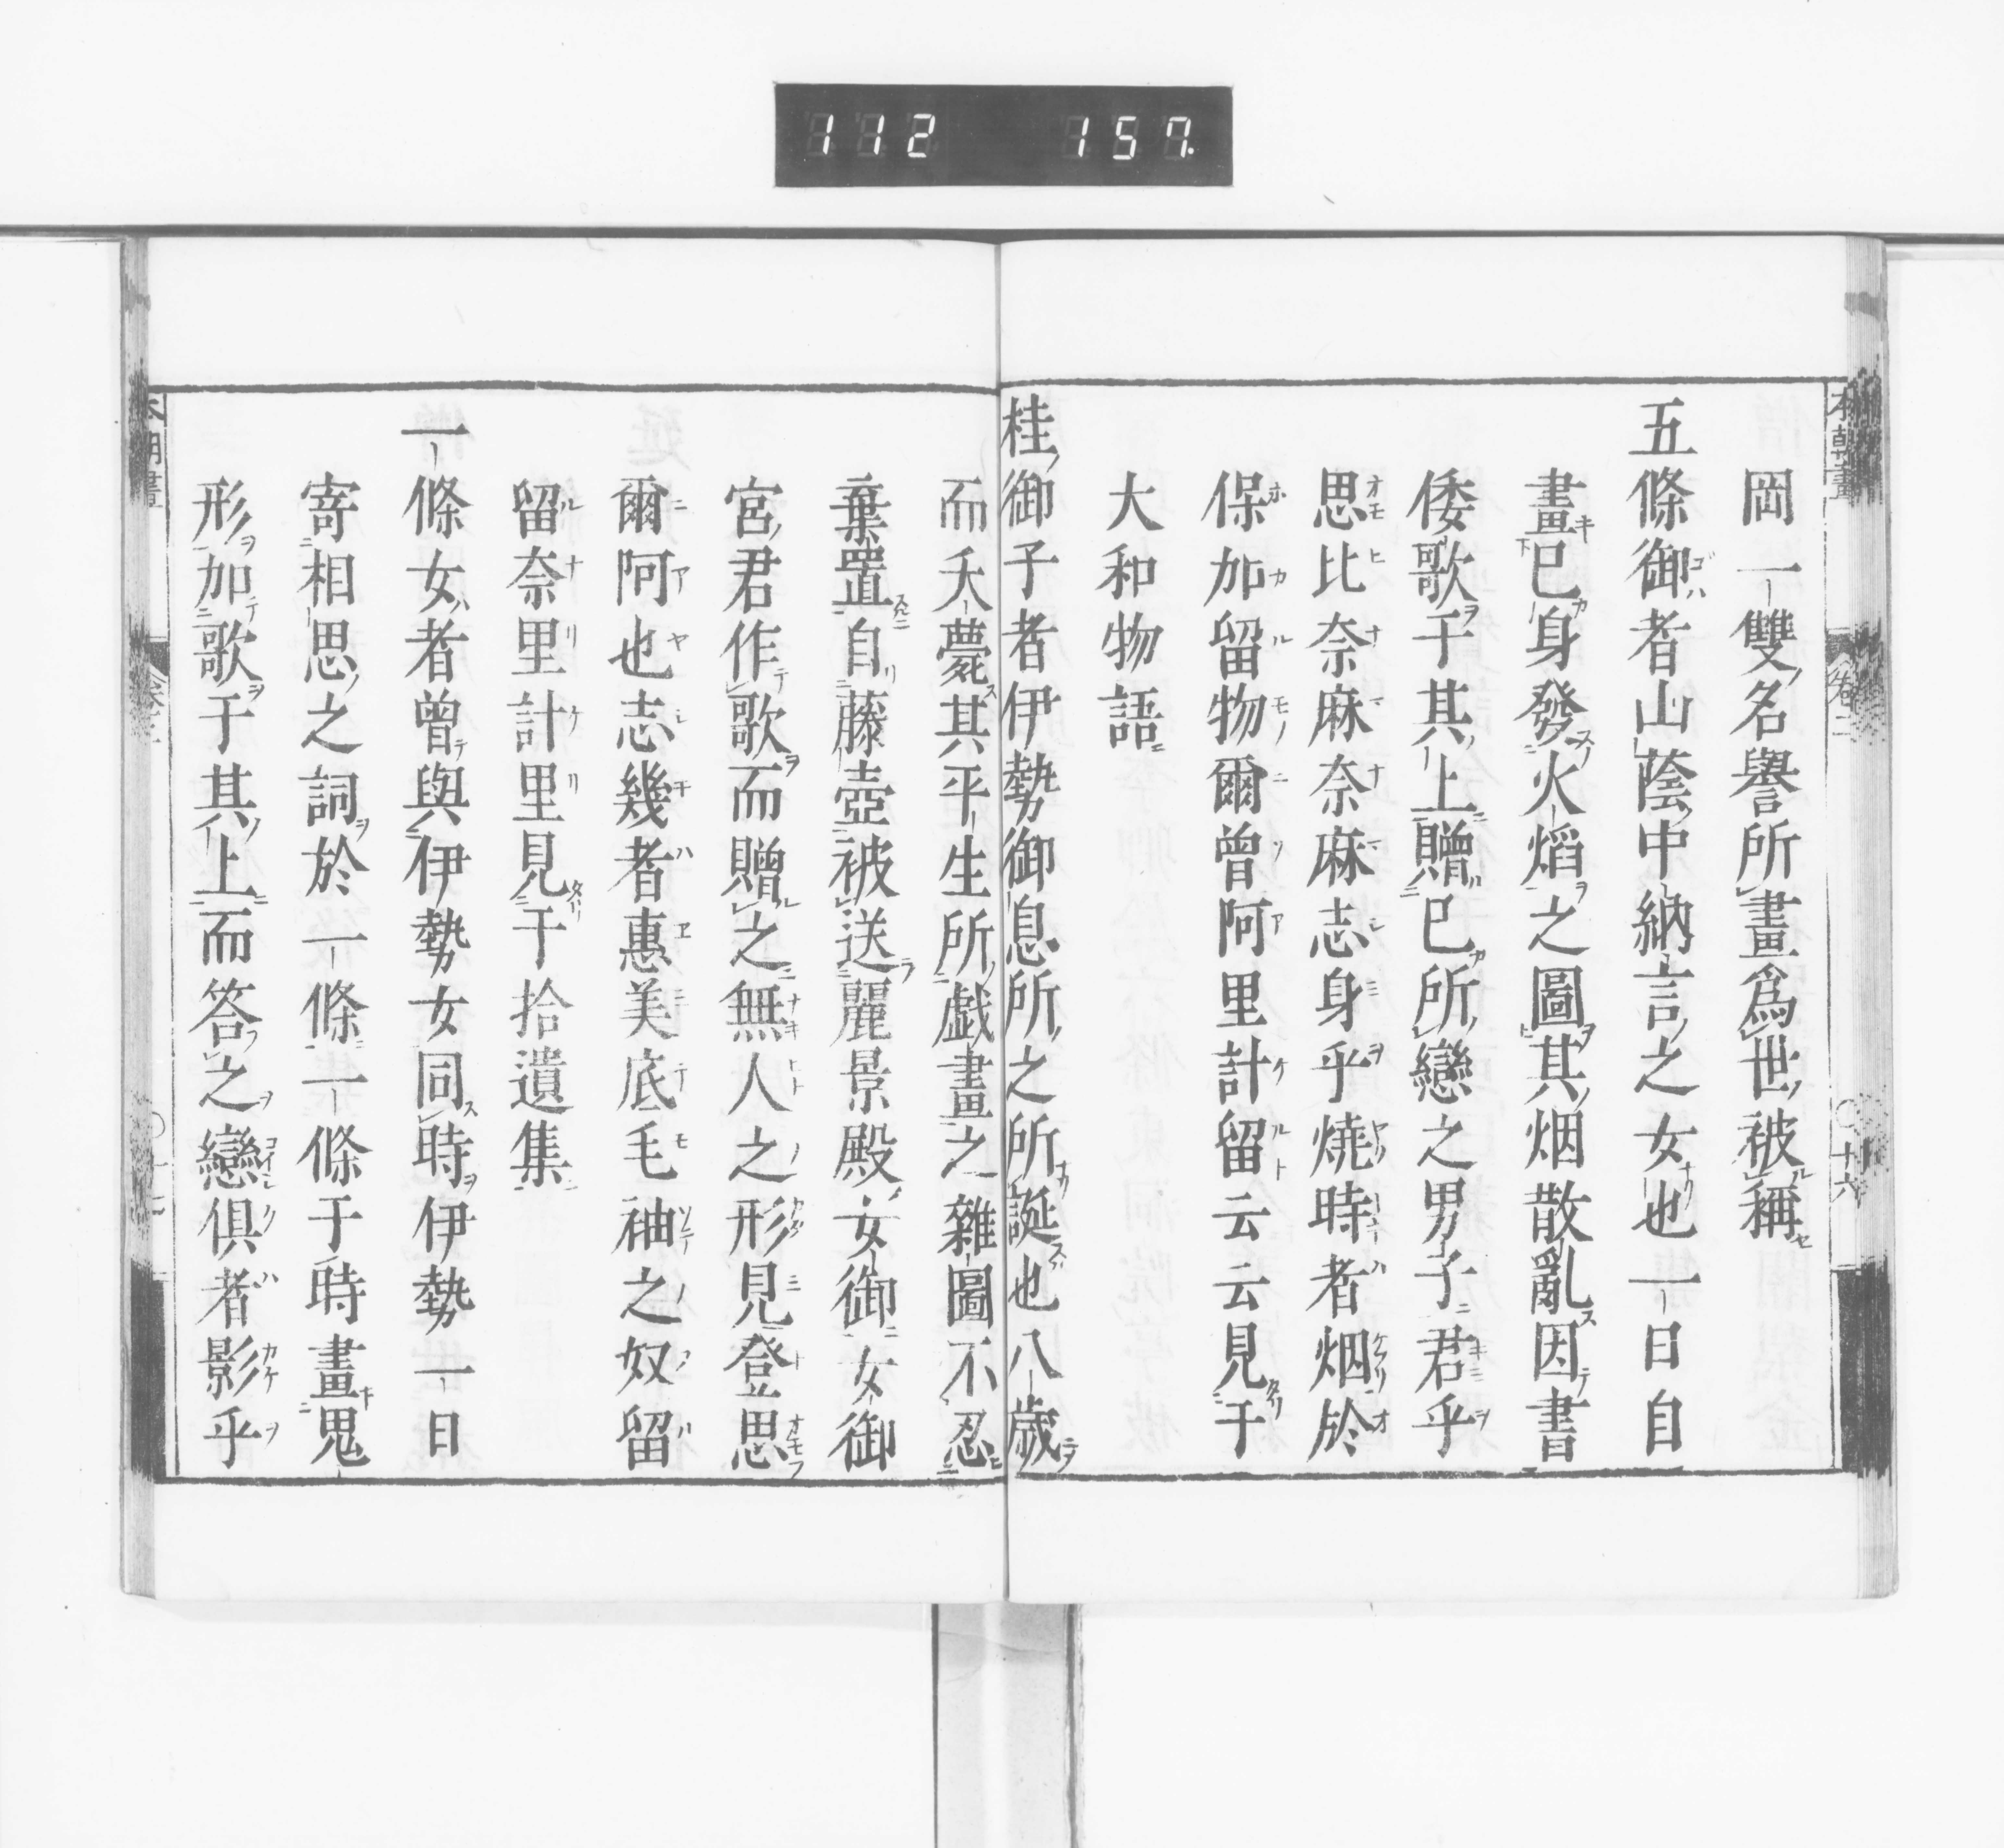 112 157.
本朝畫 卷二 〇 十六
岡一雙名譽所畫爲世被稱
五條御者山蔭中納言之女也一日自
畫己身發火焰之圖其烟散亂因書
倭歌于其上贈己所戀之男子君乎
思比奈麻奈麻志身乎燒時者烟於
保加留物爾曾阿里計留云云見于
大和物語
桂御子者伊勢御息所之所誕也八歲
而夭薨其平生所戯畫之雜圖不忍
棄置自藤壺被送麗景殿女御女御
宮君作歌而贈之無人之形見登思
爾阿也志幾者惠美底毛袖之奴留
留奈里計里見于拾遺集
一條女者曾與伊勢女同時伊勢一日
寄相思之詞於一條一條于時畫鬼
形加歌于其上而答之戀俱者影乎